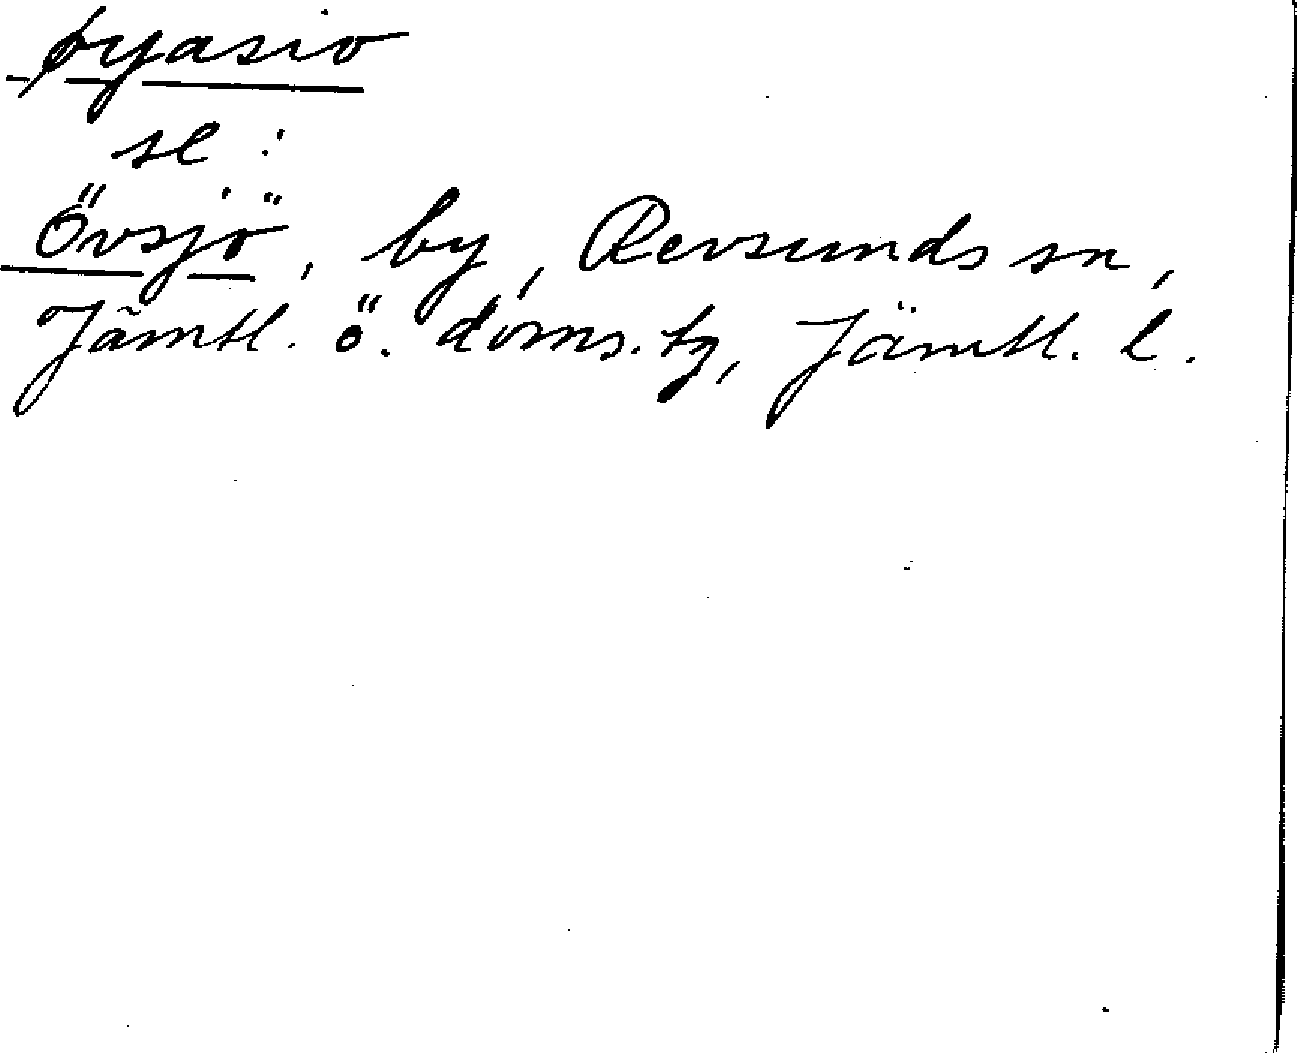 øyasio
se :
Övsjö, by, Revsunds sn,
Jämtl. ö. doms. tg, Jämtl. l.